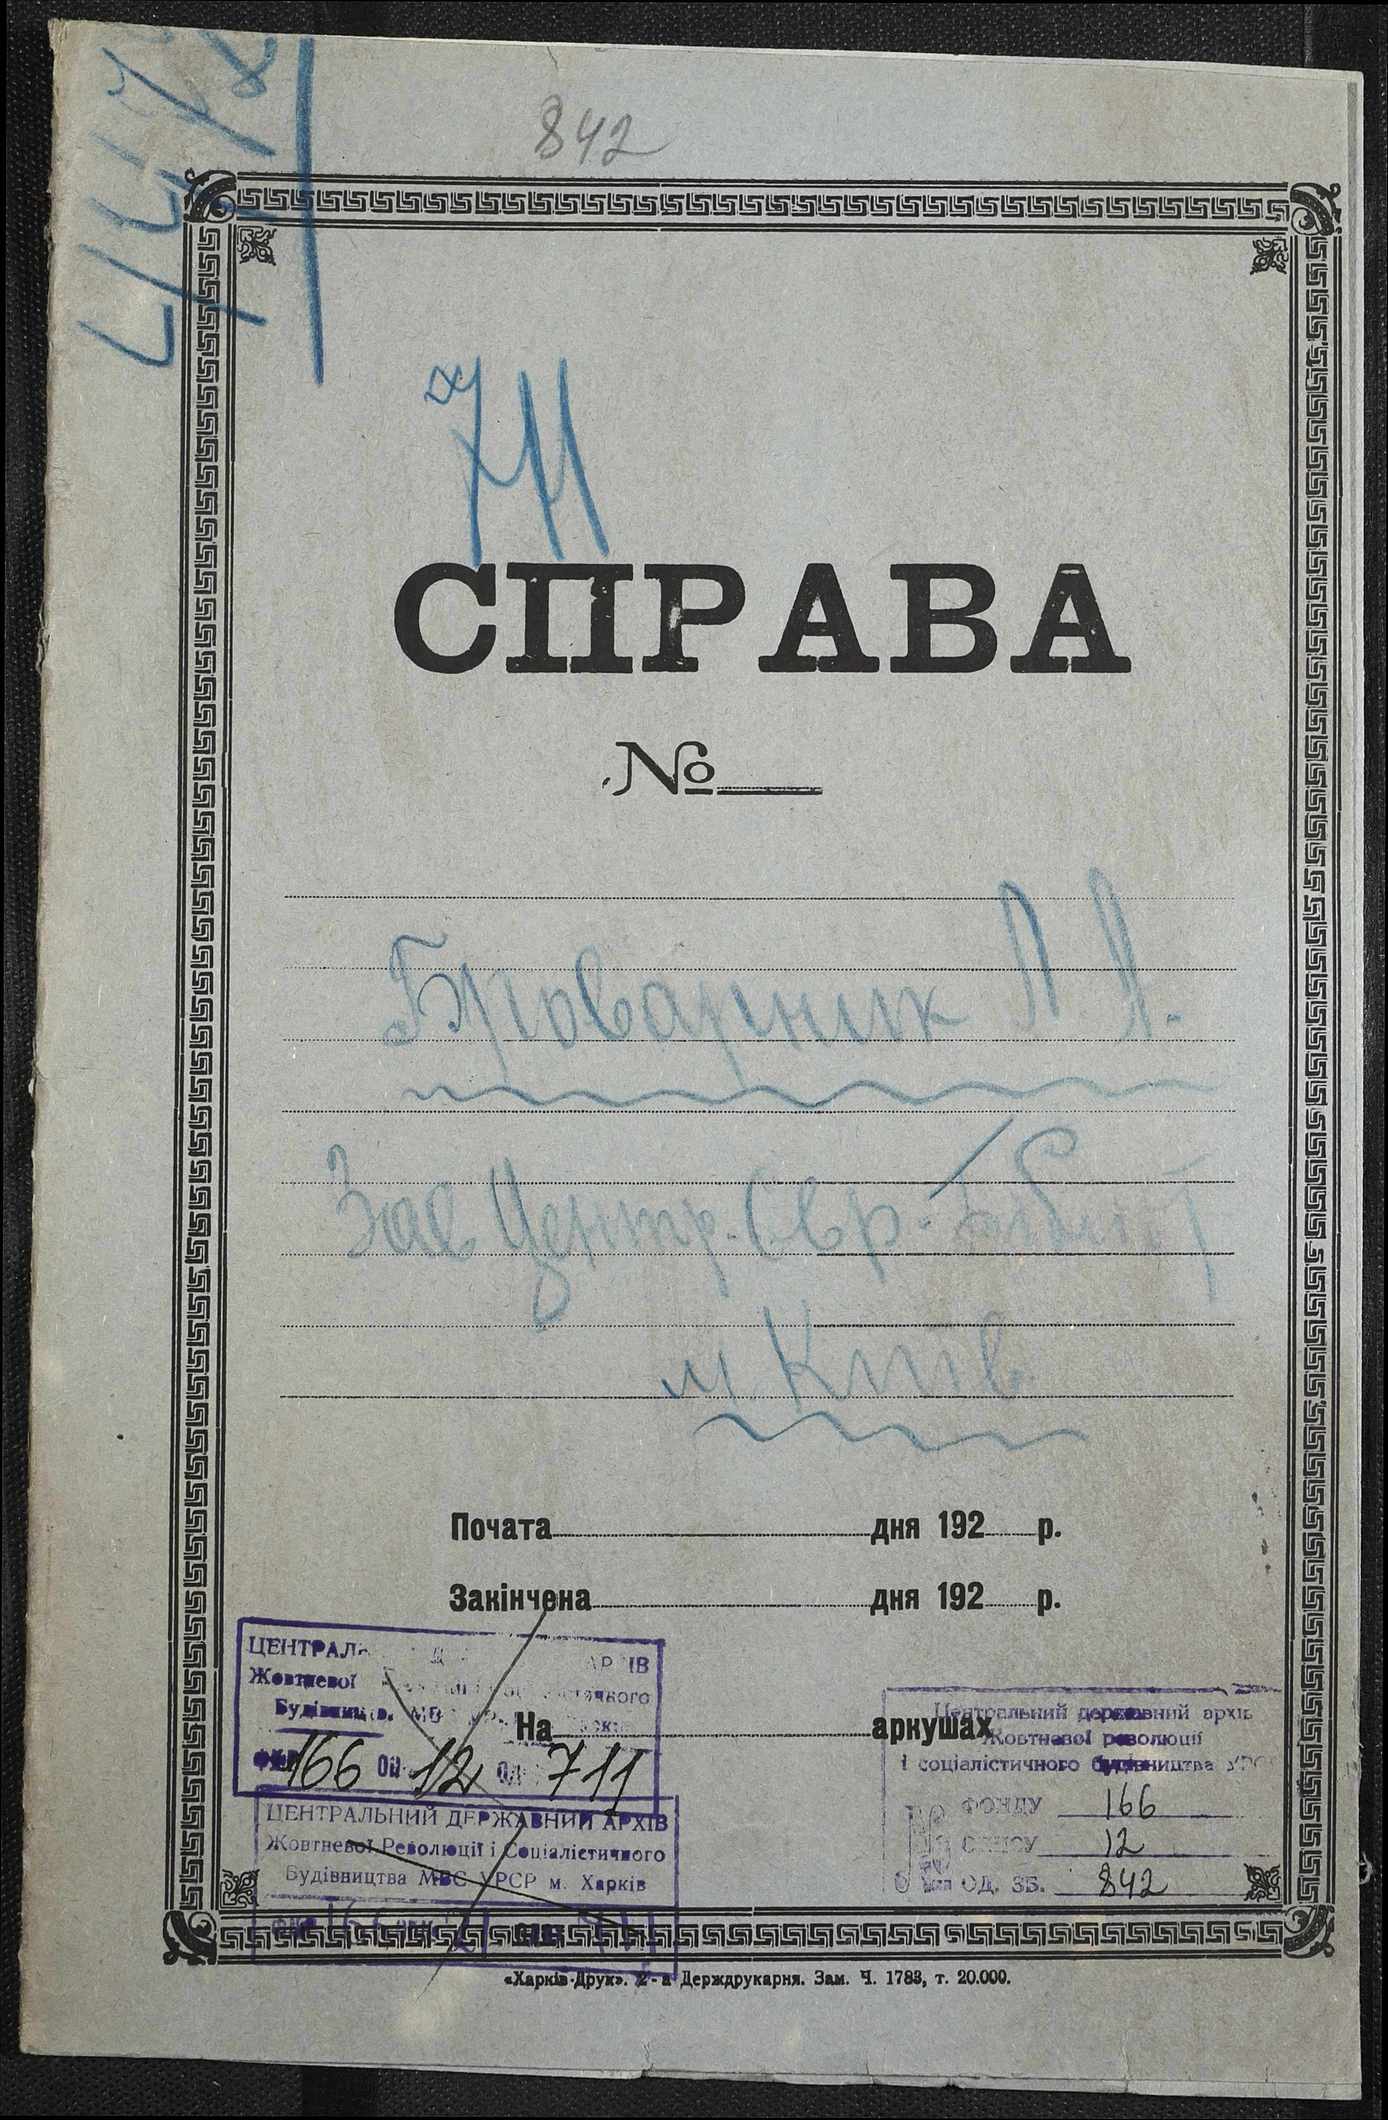 842
711
СПРАВА
№
Броварник Л. А.
Зав Центр. Євр. Бібліот
м. Київ
Почата дня 192 р.
Закінчена дня 192 р.
На аркушах
ЦЕНТРАЛ АРХІВ
Жовтневої
166 Оп. 12 Од. 711
ЦЕНТРАЛЬНИЙ ДЕРЖАВНИЙ АРХІВ
Жовтневої Революції і Соціалістичного
Будівництва МВС УРСР м. Харків
Центральний державний архів
Жовтневої революції
і соціалістичного будівництва УРСР
№ ФОНДУ 166
№ ОПИСУ 12
№ ОД. ЗБ. 842
«Харків-Друк». 2-а Держдрукарня. Зам. Ч. 1783, т. 20.000.